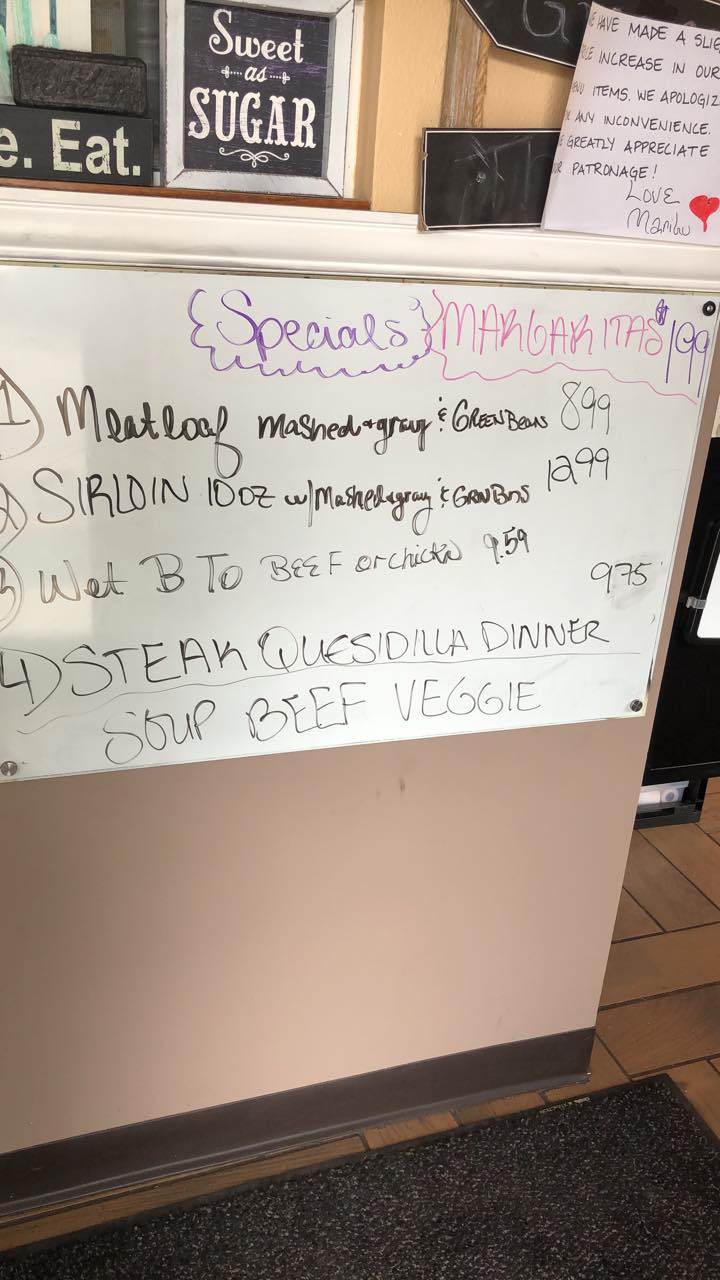 Sweet
as
SUGAR
e. Eat.
HAVE MADE A
INCREASE IN OUR
ITEMS. WE APOLOGIZ
ANY INCONVENIENCE.
GREATLY APPRECIATE
PATRONAGE!
LOVE
{Specials} MARGARITAS $1.99
1 Meatloaf Mashed + gravy & GREEN Beans 899
2 SIRLOIN 10oz w/Mashed+gravy & GRN BNS 1299
3 Wet B TO BEEF or chickn 9.59
4) STEAK QUESIDILLA DINNER 975
SOUP BEEF VEGGIE